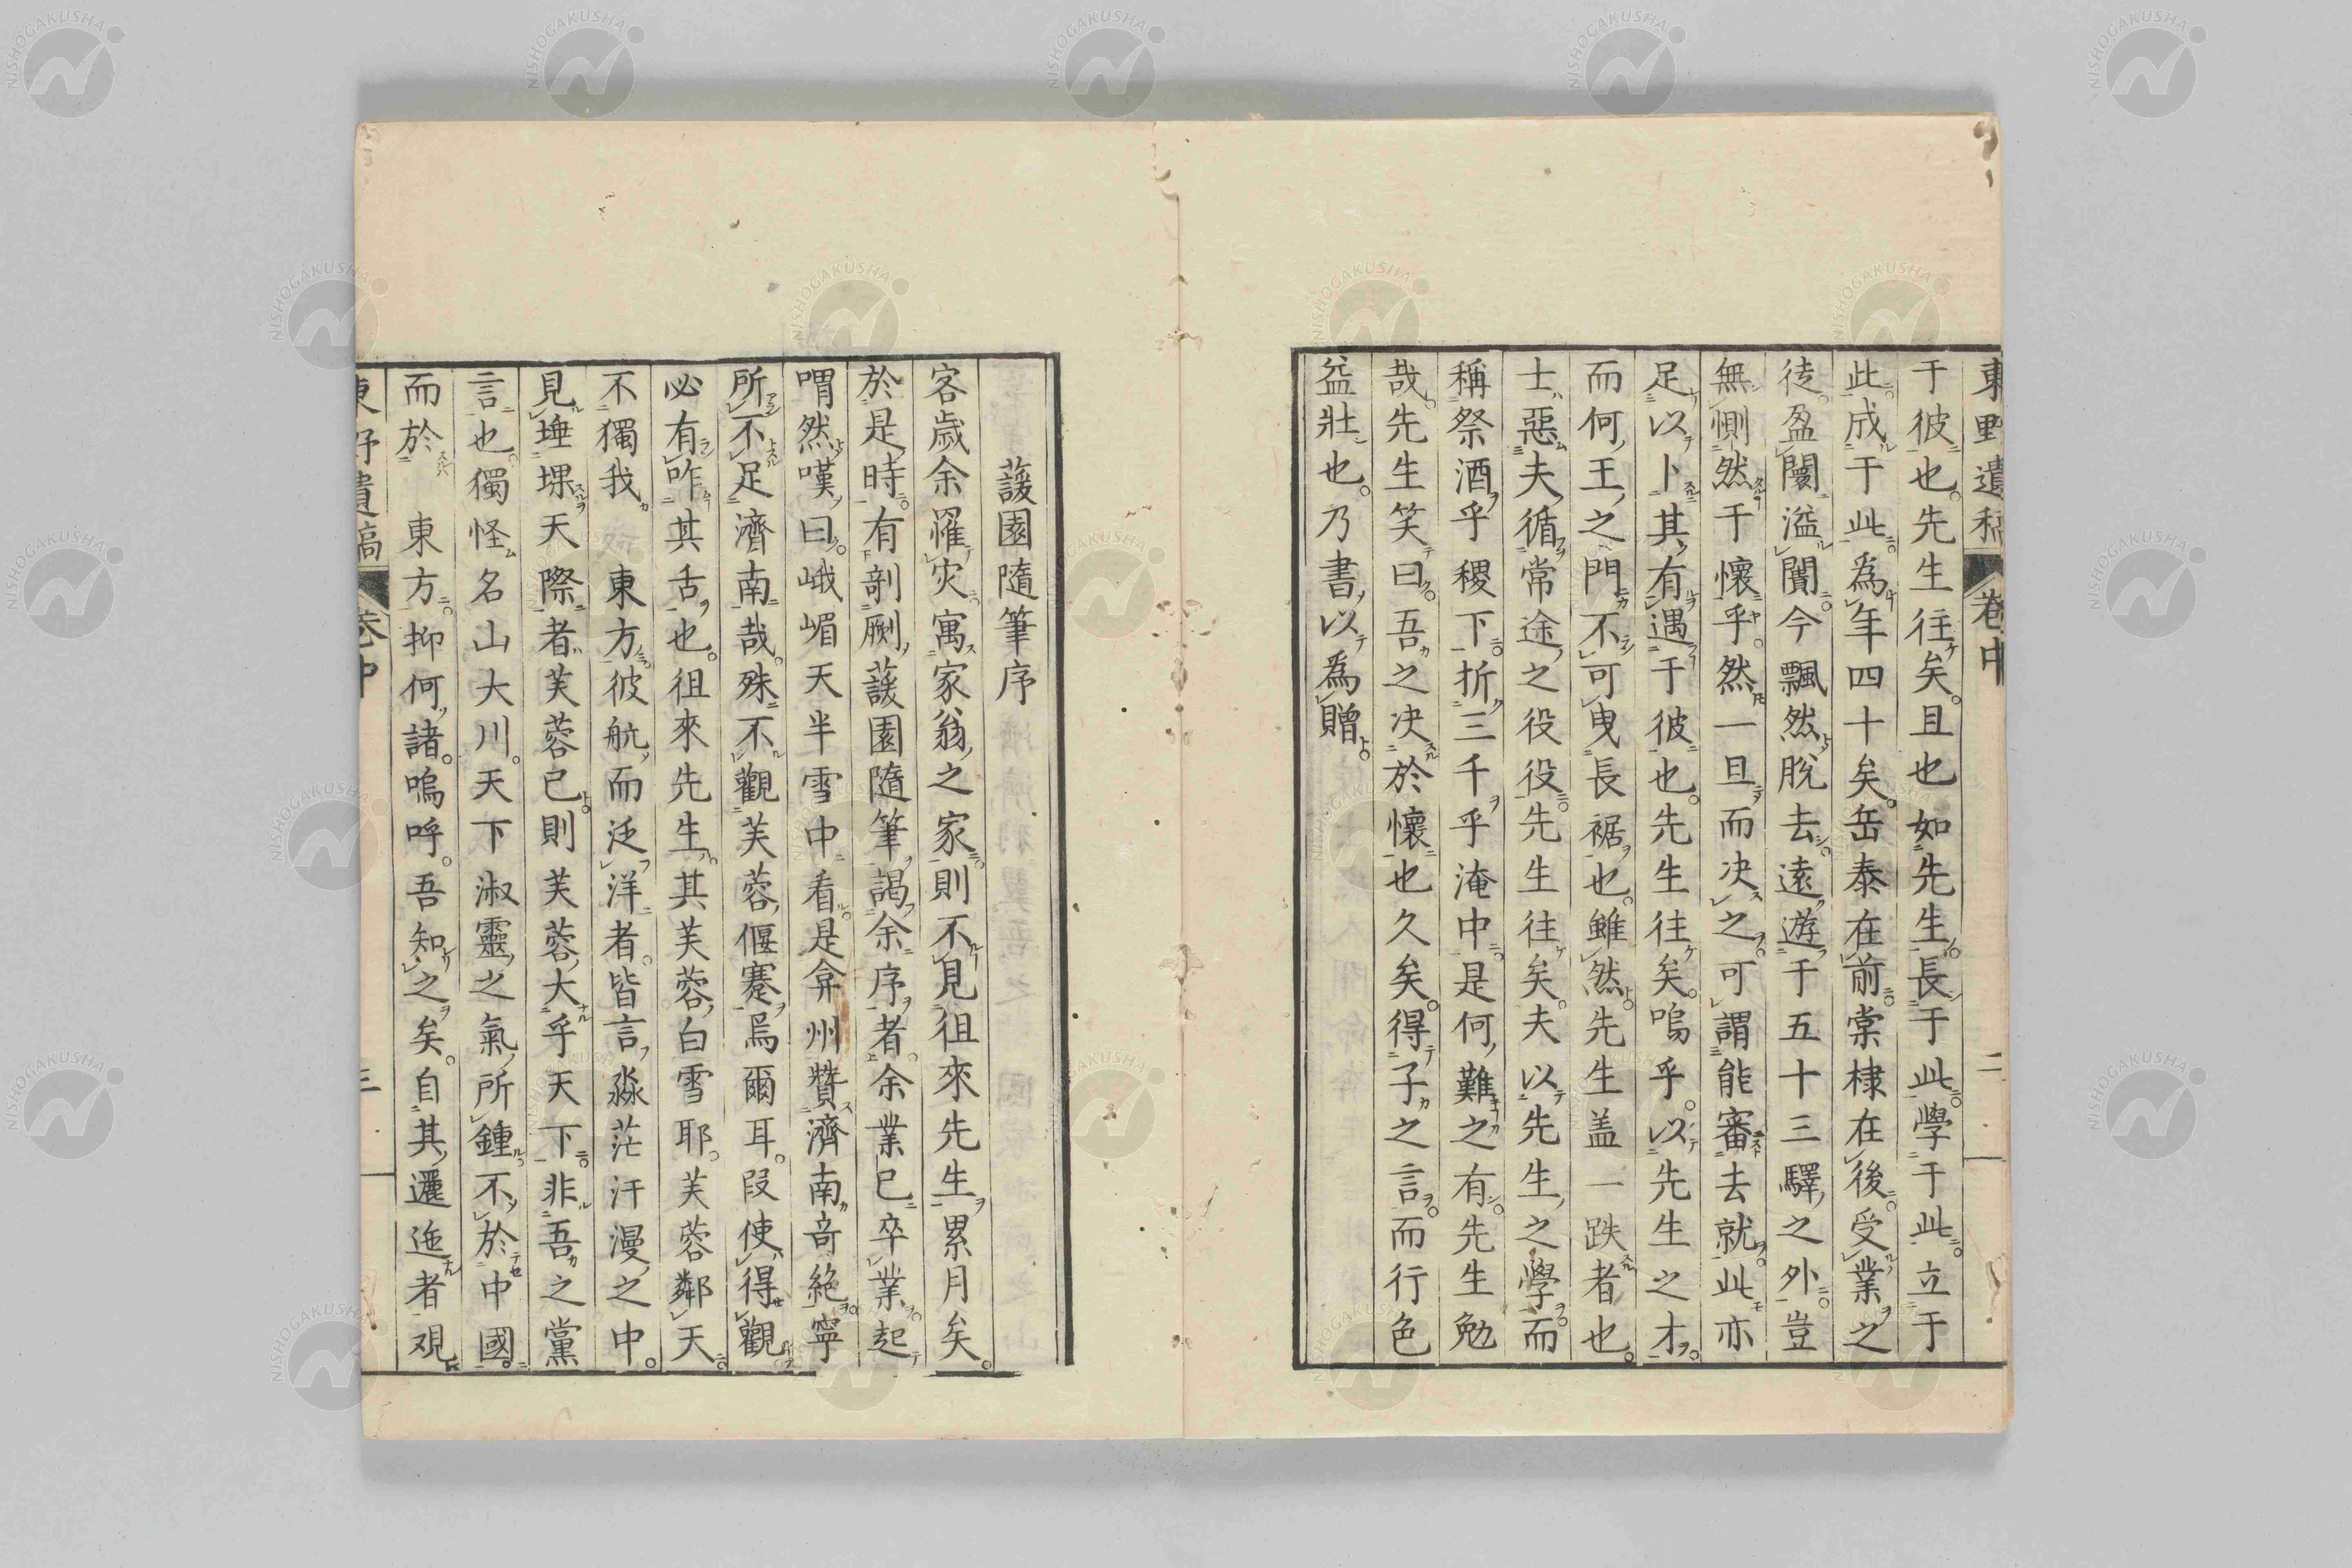 東野遺稿 卷中 二
于彼也。先生往矣。且也如先生長于此。學于此。立于
此。成于此。爲年四十矣。岳泰在前。棠棣在後。受業之
徒。盈闤溢闠。今飄然脫去。遠遊于五十三驛之外。豈
無惻然于懷乎。然一旦而决之。可謂能審去就。此亦
足以卜其有遇于彼也。先生往矣。嗚乎。以先生之才。
而何王之門不可曳長裾也。雖然。先生盖一跌者也。
士惡夫循常途之役役。先生往矣。夫以先生之學。而
稱祭酒乎稷下。折三千乎淹中。是何難之有。先生勉
哉。先生笑曰。吾之决於懷也久矣。得子之言。而行色
益壯也。乃書以爲贈。
蘐園隨筆序
客歲余罹灾。寓家翁之家。則不見徂來先生累月矣。
於是時。有剞劂蘐園隨筆。謁余序者。余業已卒業。起
喟然嘆曰。峨嵋天半雪中看。是弇州贊濟南奇絶。寧
所不足濟南哉。殊不觀芙蓉偃蹇焉爾耳。叚使得觀。
必有咋其舌也。徂來先生。其芙蓉白雪耶。芙蓉鄰天。
不獨我東方。彼航而泛洋者。皆言淼茫汗漫之中。
見埵堁天際者。芙蓉已。則芙蓉大乎天下。非吾之黨
言也。獨怪名山大川。天下淑靈之氣所鍾。不於中國。
而於 東方。抑何諸。嗚呼。吾知之矣。自其邐迤者觀
東野遺稿 卷中 三